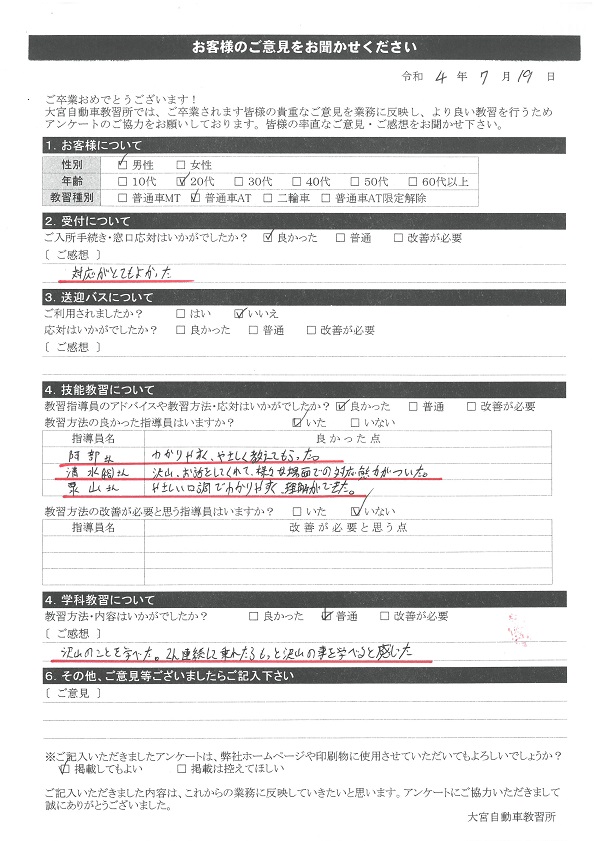 お客様のご意見をお聞かせください
令和 4 年 7 月 19 日
ご卒業おめでとうございます!
大宮自動車教習所では、ご卒業されます皆様の貴重なご意見を業務に反映し、より良い教習を行うため
アンケートのご協力をお願いしております。皆様の率直なご意見・ご感想をお聞かせ下さい。
1. お客様について
性別 ☑男性 □女性
年齢 □10代 ☑20代 □30代 □40代 □50代 □60代以上
教習種別 □普通車MT ☑普通車AT □二輪車 □普通車AT限定解除
2. 受付について
ご入所手続き・窓口応対はいかがでしたか? ☑良かった □普通 □改善が必要
〔 ご感想 〕
対応がとてもよかった
3. 送迎バスについて
ご利用されましたか? □はい ☑いいえ
応対はいかがでしたか? □良かった □普通 □改善が必要
〔 ご感想 〕
4. 技能教習について
教習指導員のアドバイスや教習方法・応対はいかがでしたか? ☑良かった □普通 □改善が必要
教習方法の良かった指導員はいますか? ☑いた □いない
指導員名 良かった点
阿部さん わかりやすく、やさしく教えてもらった。
清水 さん 沢山、お話をしてくれて、様々な場面での対応能力がついた。
栗山さん やさしい口調でわかりやすく理解ができた。
教習方法の改善が必要と思う指導員はいますか? □いた ☑いない
指導員名 改善が必要と思う点
4. 学科教習について
教習方法・内容はいかがでしたか? □良かった ☑普通 □改善が必要
〔 ご感想 〕
沢山のことを学べた。 連続して乗れたらもっと沢山の事を学べると感じた
6. その他、ご意見等ございましたらご記入下さい
〔 ご意見 〕
※ご記入いただきましたアンケートは、弊社ホームページや印刷物に使用させていただいてもよろしいでしょうか?
☑掲載してもよい □掲載は控えてほしい
ご記入いただきました内容は、これからの業務に反映していきたいと思います。アンケートにご協力いただきまして
誠にありがとうございました。
大宮自動車教習所